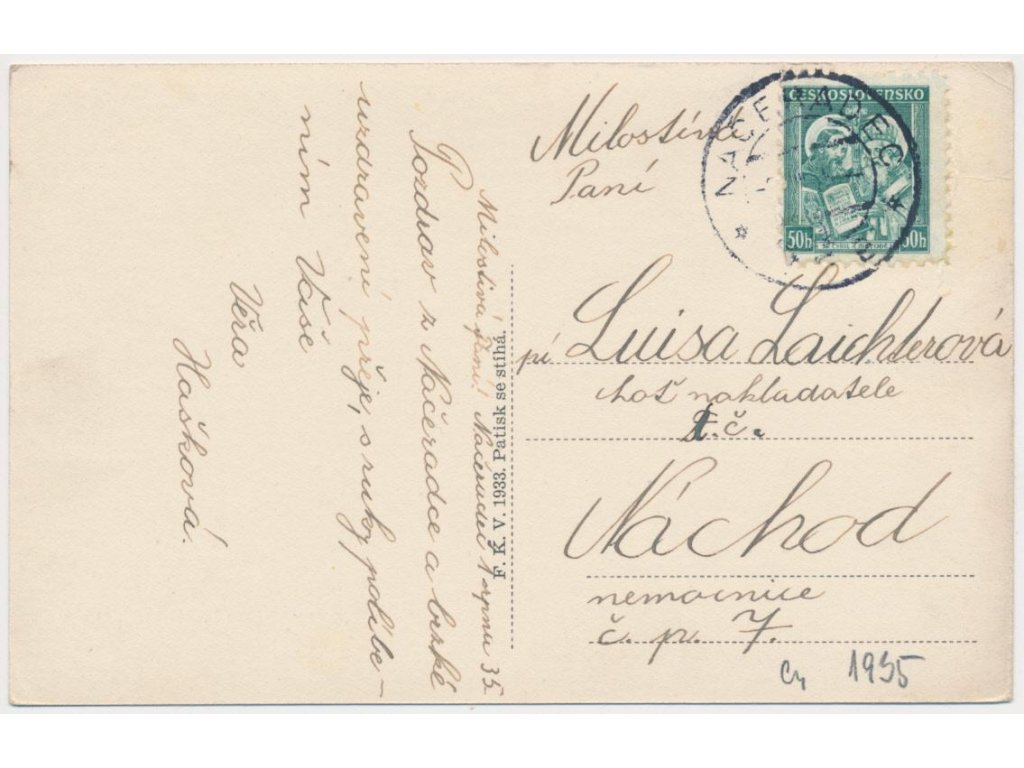 Milostivá paní! Načeradec 1 srpnu 35.
Pozdrav z Načeradce a brzké
uzdravení přeje, s ruky políbe-
ním Vaše
Věra
Hašková.
F. K. V. 1933. Patisk se stíhá.
Milostivá
Paní
pí Luisa Laichterová
choť nakladatele
t.č.
Náchod
nemocnice
č. p. 7.
1935
NAČERADEC
ČESKOSLOVENSKO
50h 50h